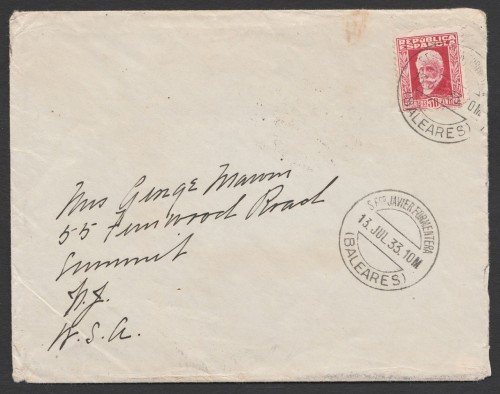 REPÚBLICA
ESPAÑOLA
(BALEARES)
Mrs George Marvin
55 Fernwood Road
Summit
N.J.
U.S.A.
S. FCO JAVIER FORMENTERA
13. JUL 33. 10M
(BALEARES)